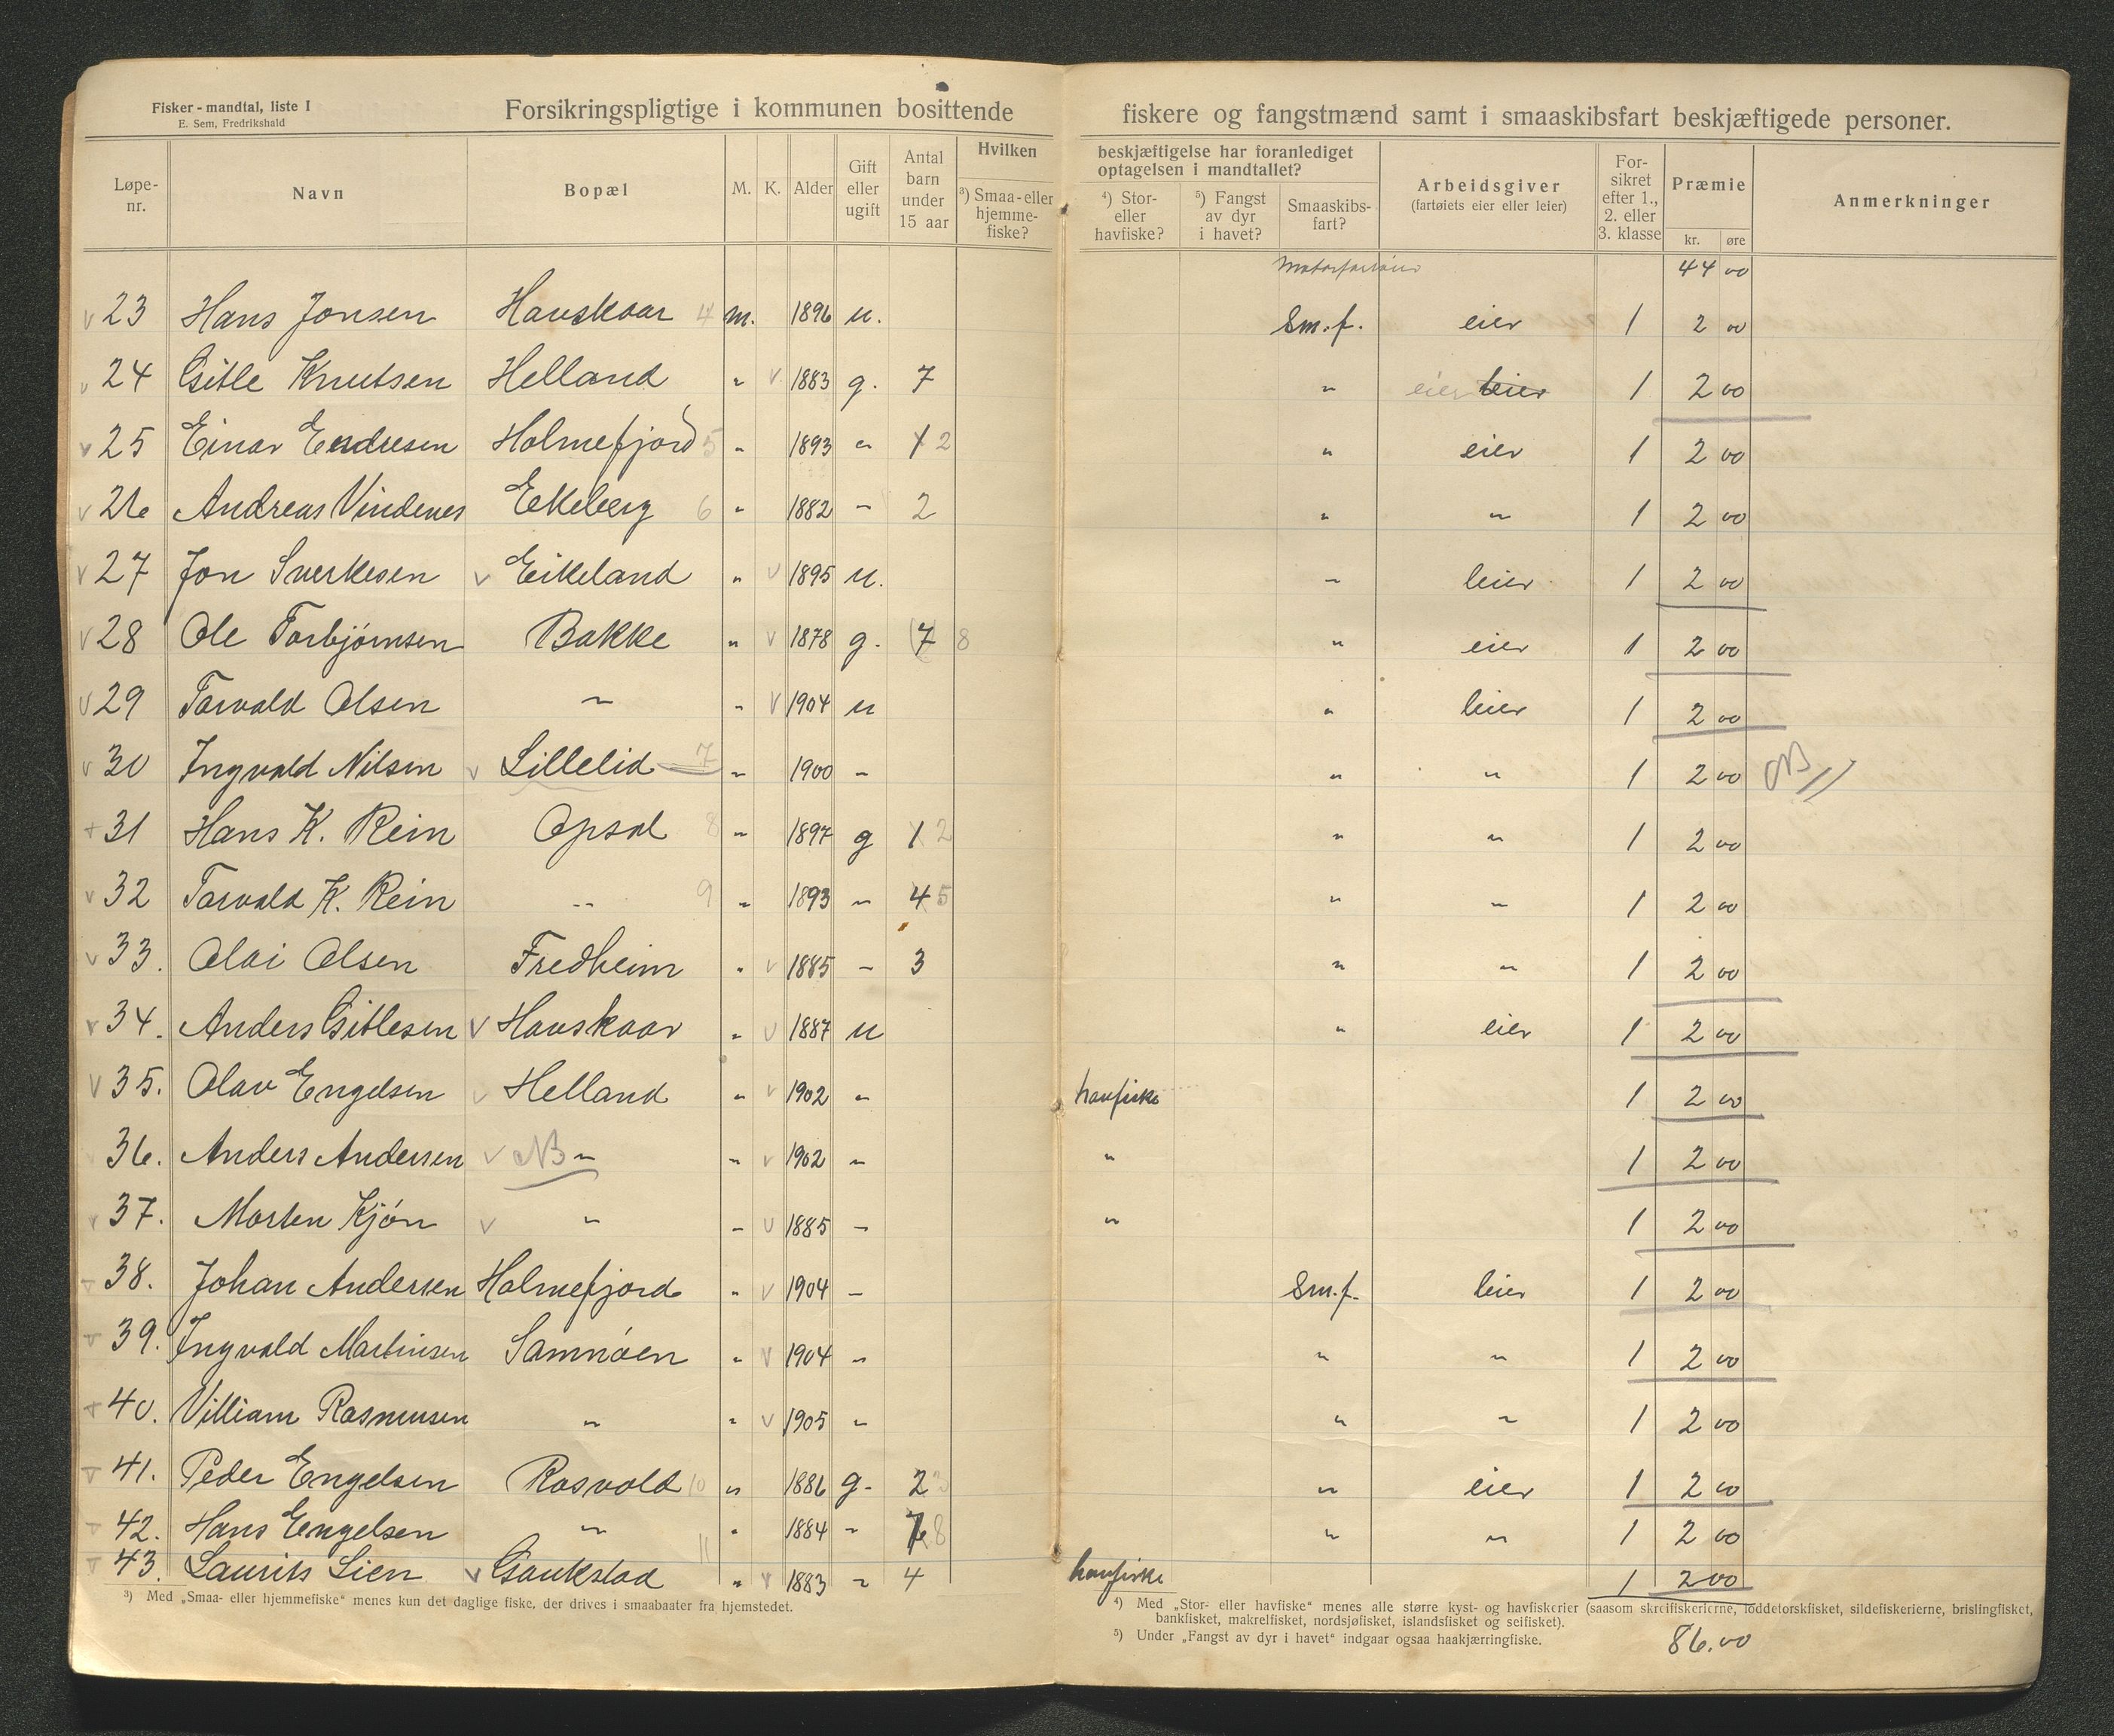 Fisker - mandtal, liste I
E. Sem, Fredrikshald
Forsikringspligtige i kommunen bosittende fiskere og fangstmænd samt i smaaskibsfart beskjæftigede personer.
Løpe-nr. Navn Bopæl M. K. Alder Gift eller ugift Antal barn under 15 aar Hvilken beskjæftigelse har foranlediget optagelsen i mandtallet? ³) Smaa- eller hjemme-fiske? ⁴) Stor- eller havfiske? ⁵) Fangst av dyr i havet? Smaaskibs-fart? Arbeidsgiver (fartøiets eier eller leier) For-sikret efter 1., 2. eller 3. klasse Præmie kr. øre Anmerkninger
44 00
v 23 Hans Jonsen Hauskaar 4 m. 1896 u. Sm.f. eier 1 2 00
v 24 Gitle Knutsen Helland " v 1883 g. 7 " eier leier 1 2 00
v 25 Einar Endresen Holmefjord 5 " 1893 " 1 2 " eier 1 2 00
v 26 Andreas Vindenes Eikeberg 6 " 1882 " 2 " " 1 2 00
v 27 Jon Sverkesen v Eikeland " v 1895 u. " leier 1 2 00
v 28 Ole Torbjørnsen Bakke " v 1878 g. (7) 8 " eier 1 2 00
v 29 Torvald Olsen " " v 1904 u " leier 1 2 00
v 30 Ingvald Nilsen v Lillelid 7 " 1900 " " " 1 2 00 NB
31 Hans K. Rein Opsal 8 " 1897 g 1 2 " " 1 2 00
v 32 Torvald K. Rein " 9 " 1893 " 4 5 " " 1 2 00
v 33. Olai Olsen Fredheim " v 1885 " 3 " " 1 2 00
v 34. Anders Gitlesen v Hauskaar " v 1887 u " eier 1 2 00
v 35. Olav Engelsen v Helland " v 1902 " havfiske 1 2 00
36. Anders Andersen v NB " " v 1902 " " 1 2 00
v 37. Morten Kjøn v " " v 1885 " " 1 2 00
v 38. Johan Andersen Holmefjord " v 1904 " Sm.f. leier 1 2 00
v 39. Ingvald Martinsen Samnøen " v 1904 " " " 1 2 00
v 40. Villiam Rasmusen " " v 1905 " " " 1 2 00
v 41. Peder Engelsen Rosvold 10 " 1886 g. 2 3 " eier 1 2 00
v 42. Hans Engelsen " 11 " 1884 " 7 8 " " 1 2 00
v 43. Laurits Lien v Gaukstad " v 1883 " 4 havfiske 1 2 00
³) Med „Smaa- eller hjemmefiske“ menes kun det daglige fiske, der drives i smaabaater fra hjemstedet.
⁴) Med „Stor- eller havfiske“ menes alle større kyst- og havfiskerier (saasom skreifiskerierne, loddetorskfisket, sildefiskerierne, brislingfisket,
bankfisket, makrelfisket, nordsjøfisket, islandsfisket og seifisket).
⁵) Under „Fangst av dyr i havet“ indgaar ogsaa haakjærringfiske.
86.00